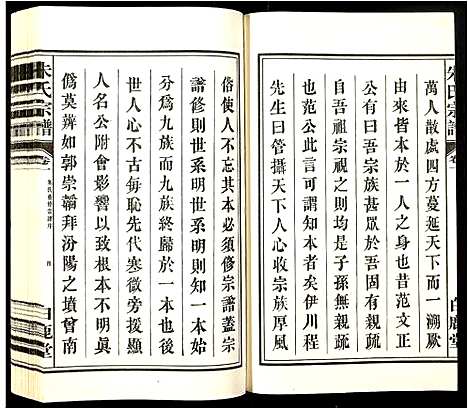 朱氏宗譜
卷一
白鹿堂
萬人散處四方蔓延天下而一溯厥
由來皆本於一人之身也昔范文正
公有曰吾宗族甚眾於吾固有親疏
自吾祖宗視之則均是子孫無親疏
也范公此言其知本者矣伊川程
先生曰管攝天下人心收宗族厚風
俗使人不忘其本必須修宗譜蓋宗
譜修則世系明世系明則知一本始
分為九族而九族終歸於一本也後
世人心不古每恥先代寒微旁援顯
人名公附會影響以致根本不明真
偽莫辨如郭崇韜拜汾陽之墳曾南
朱氏宗譜
卷一
朱氏重修宗譜序
白鹿堂